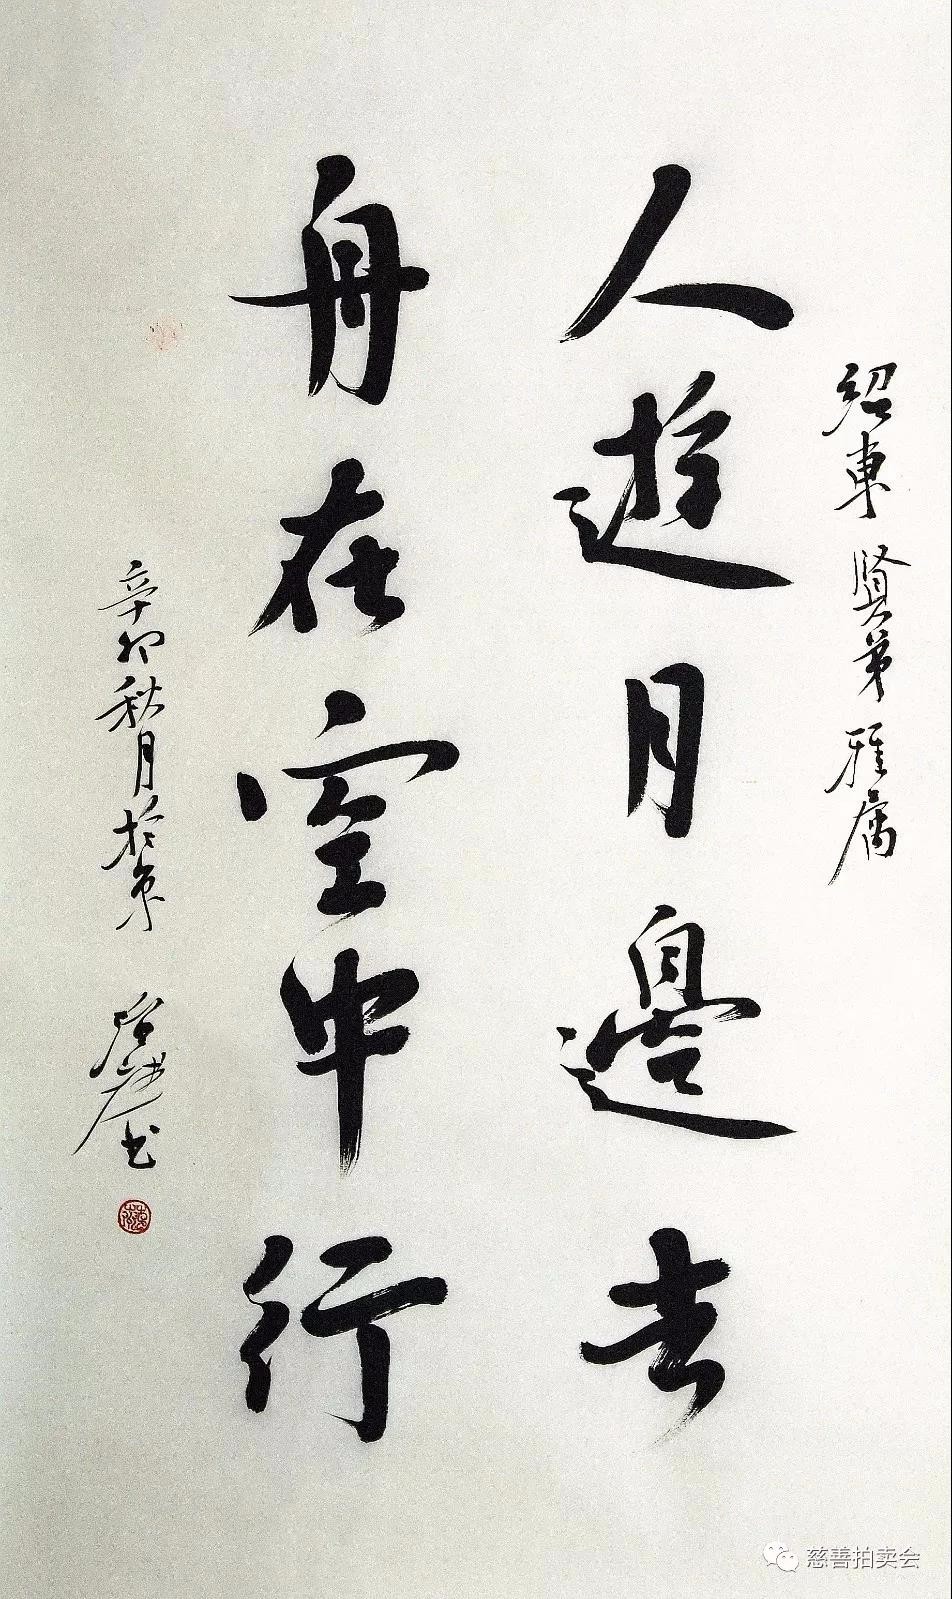 紹東賢弟雅屬
人遊月邊去
舟在空中行
辛卯秋月於京
書
慈善拍卖会